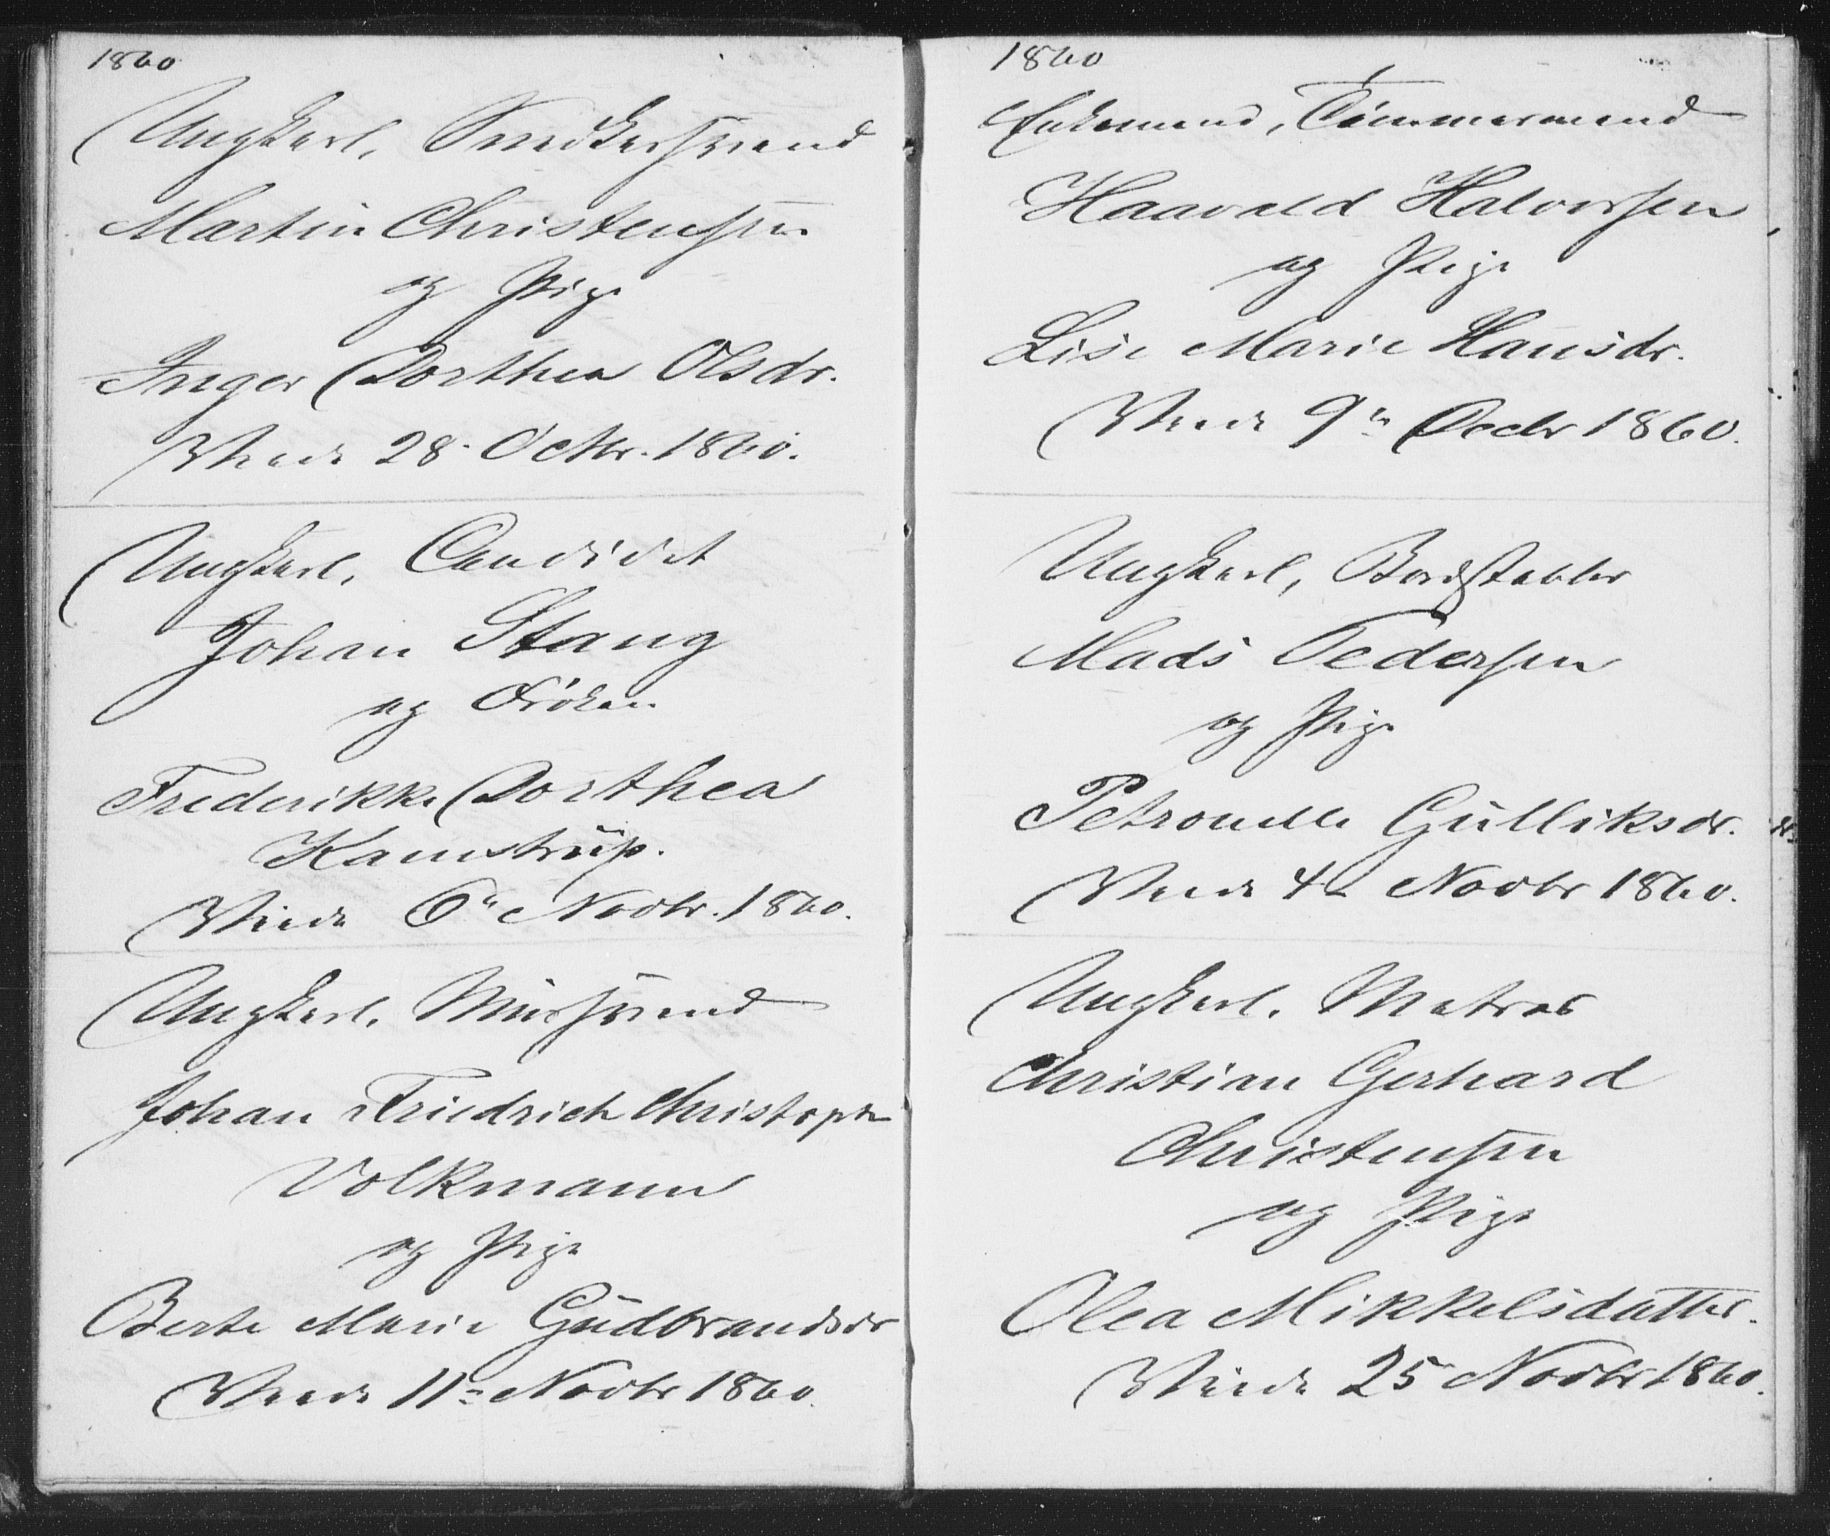 1860
Ungkarl, Snedkersvend
Martin Christensen
og Pige
Inger Dorthea Olsdr.
Viede 28. Octbr. 1860.
Ungkarl, Candidat
Johan Stang
og Frøken
Frederikke Dorthea
Kamstrüp.
Viede 6te Novbr. 1860.
Ungkarl, Mürsvend
Johan Friedrich Christoph
Volkmann
og Pige
Berte Marie Güdbrandsdr
Viede 11te Novbr 1860.
1860
Enkemand, Tømmermand
Haavald Halvorsen
og Pige
Lise Marie Hansdr.
Viede 9de Decbr 1860.
Ungkarl, Bordstabler
Mads Pedersen
og Pige
Petronelle Gülliksdr.
Viede 4de Novbr 1860.
Ungkarl, Matros
Christian Gerhard
Christensen
og Pige
Olea Mikkelsdatter.
Viede 25 Novbr 1860.